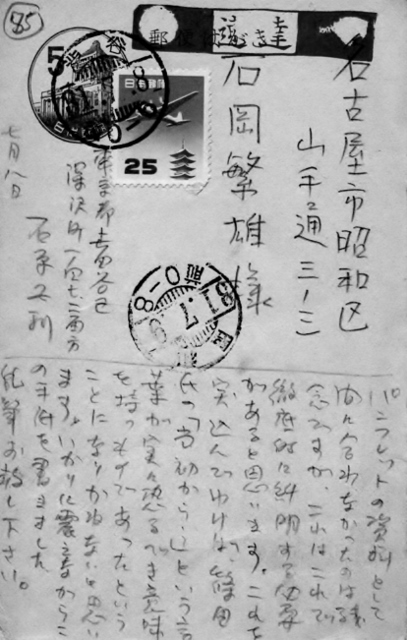 85
速達
郵便はがき
名古屋市昭和区
山手通三ノ三
石岡繁雄様
日本郵便
25
5
東京都世田谷区
深沢町
石原
七月八日
パンフレットの資料として
間に合わなかったのは残
念ですが、これはこれで
徹底的に糾明する必要
があると思います。これで
突込んでゆけば、篠田
氏の「当初から」という言
葉が実に恐るべき意味
を持つものであったという
ことになりかねないと思い
ます。いかりに震えながらこ
の手紙を書きました
乱筆お赦し下さい。